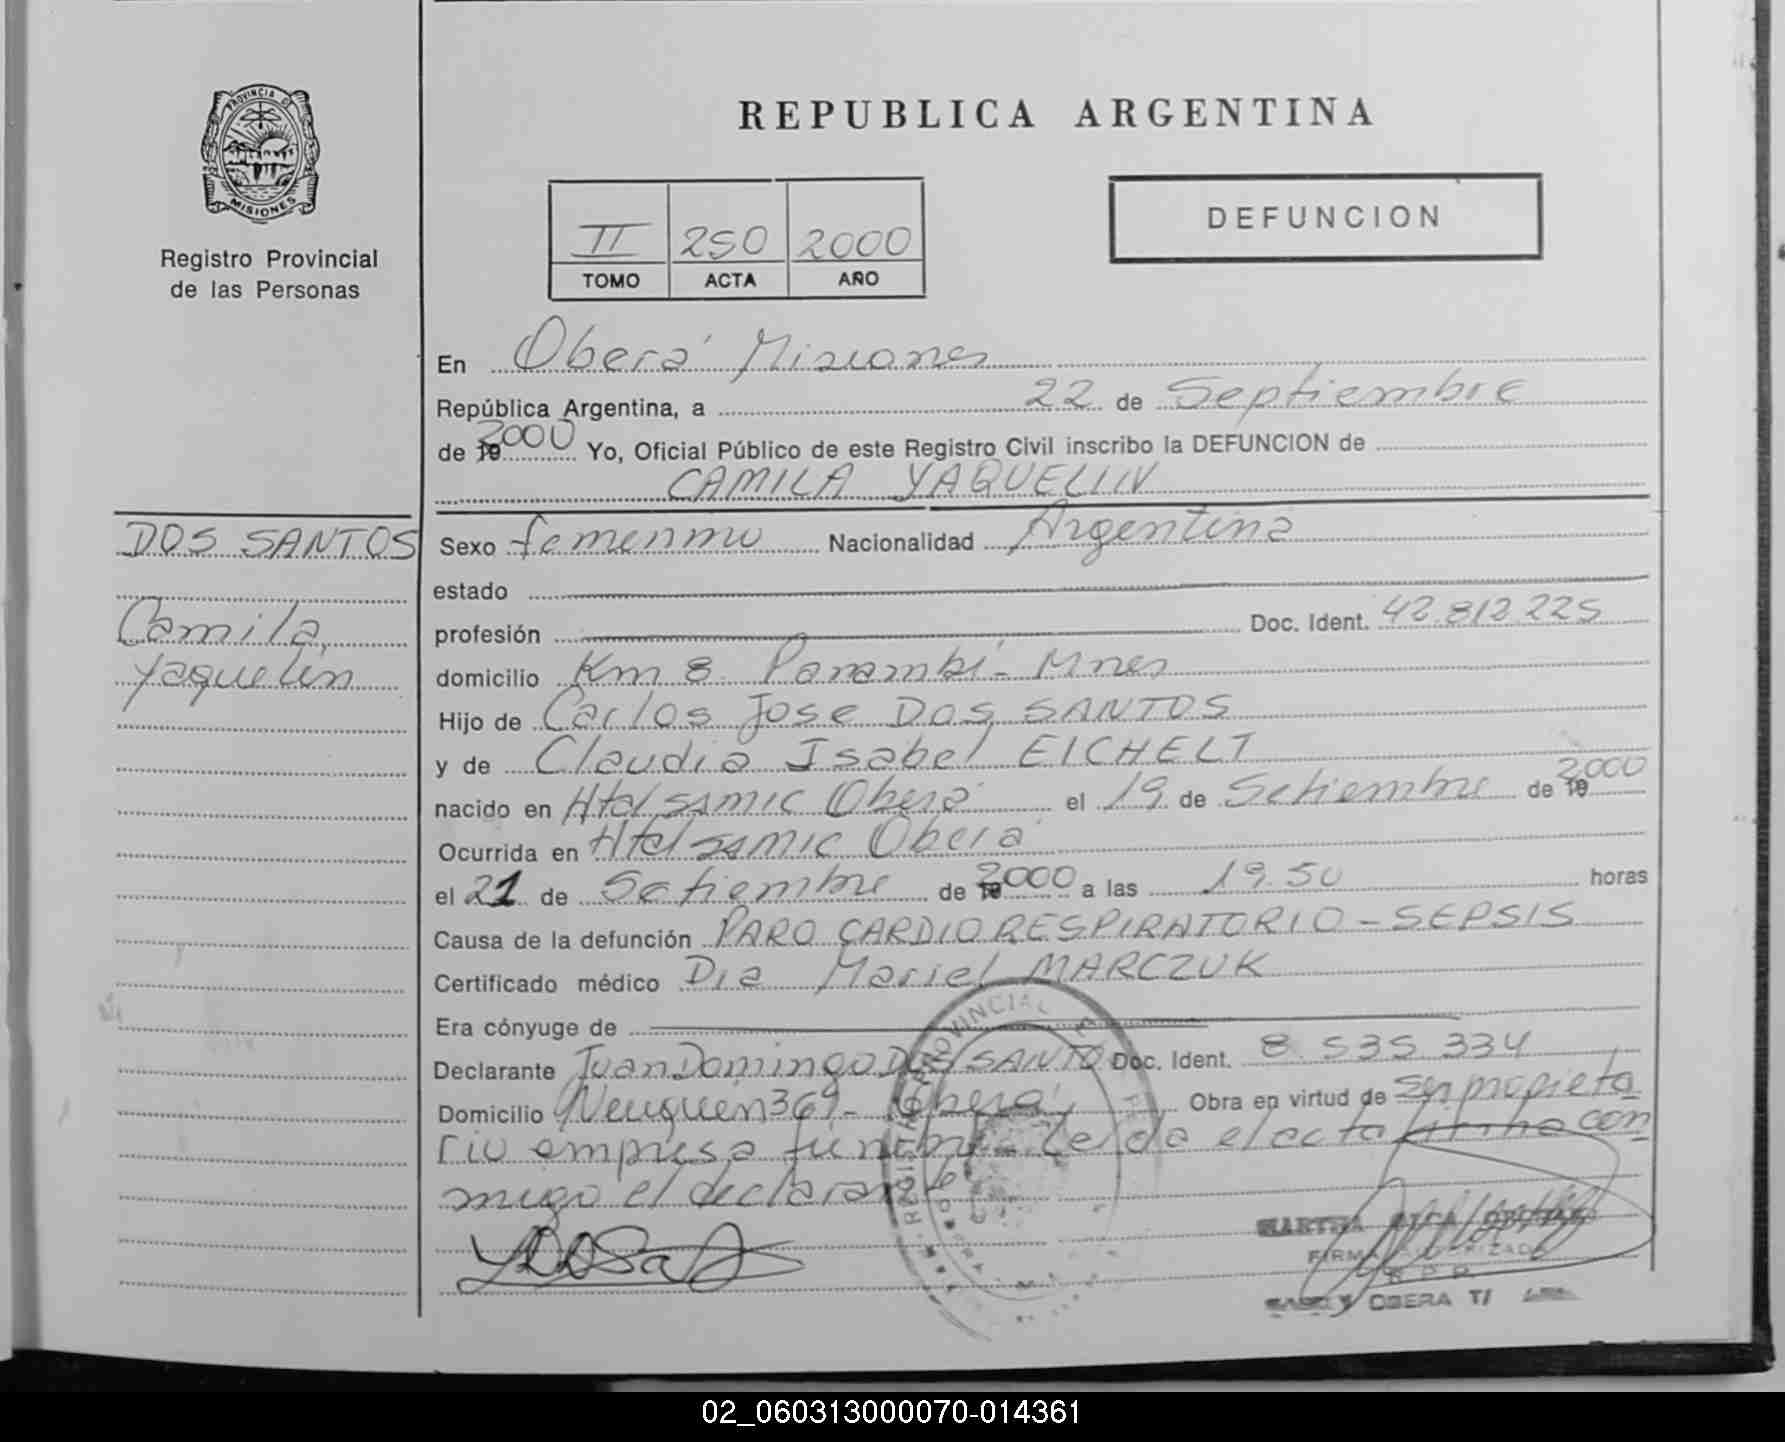 PROVINCIA DE
MISIONES
Registro Provincial
de las Personas
REPUBLICA ARGENTINA
II 250 2000
TOMO ACTA AÑO
DEFUNCION
En Oberá Misiones
República Argentina, a 22 de Septiembre
de 19 2000 Yo, Oficial Público de este Registro Civil inscribo la DEFUNCION de
CAMILA YAQUELIN
DOS SANTOS
Camila,
Yaquelin
Sexo femenino Nacionalidad Argentina
estado
profesión Doc. Ident. 42.812.225
domicilio Km 8 Panambí - Mnes
Hijo de Carlos Jose DOS SANTOS
y de Claudia Isabel EICHELT
nacido en Htal SAMIC Oberá el 19 de Setiembre de 19 2000
Ocurrida en Htal SAMIC Oberá
el 21 de Setiembre de 19 2000 a las 19.50 horas
Causa de la defunción PARO CARDIORESPIRATORIO - SEPSIS
Certificado médico Dra Mariel MARCZUK
Era cónyuge de
Declarante Juan Domingo DOS SANTO Doc. Ident. 8.535.334
Domicilio Neuquén 369 - Oberá, Obra en virtud de ser propieta
rio empresa fúnebre. Leída el acta firma con
migo el declarante
MARTHA
FIRMA AUTORIZADA
R. P. P.
OBERA